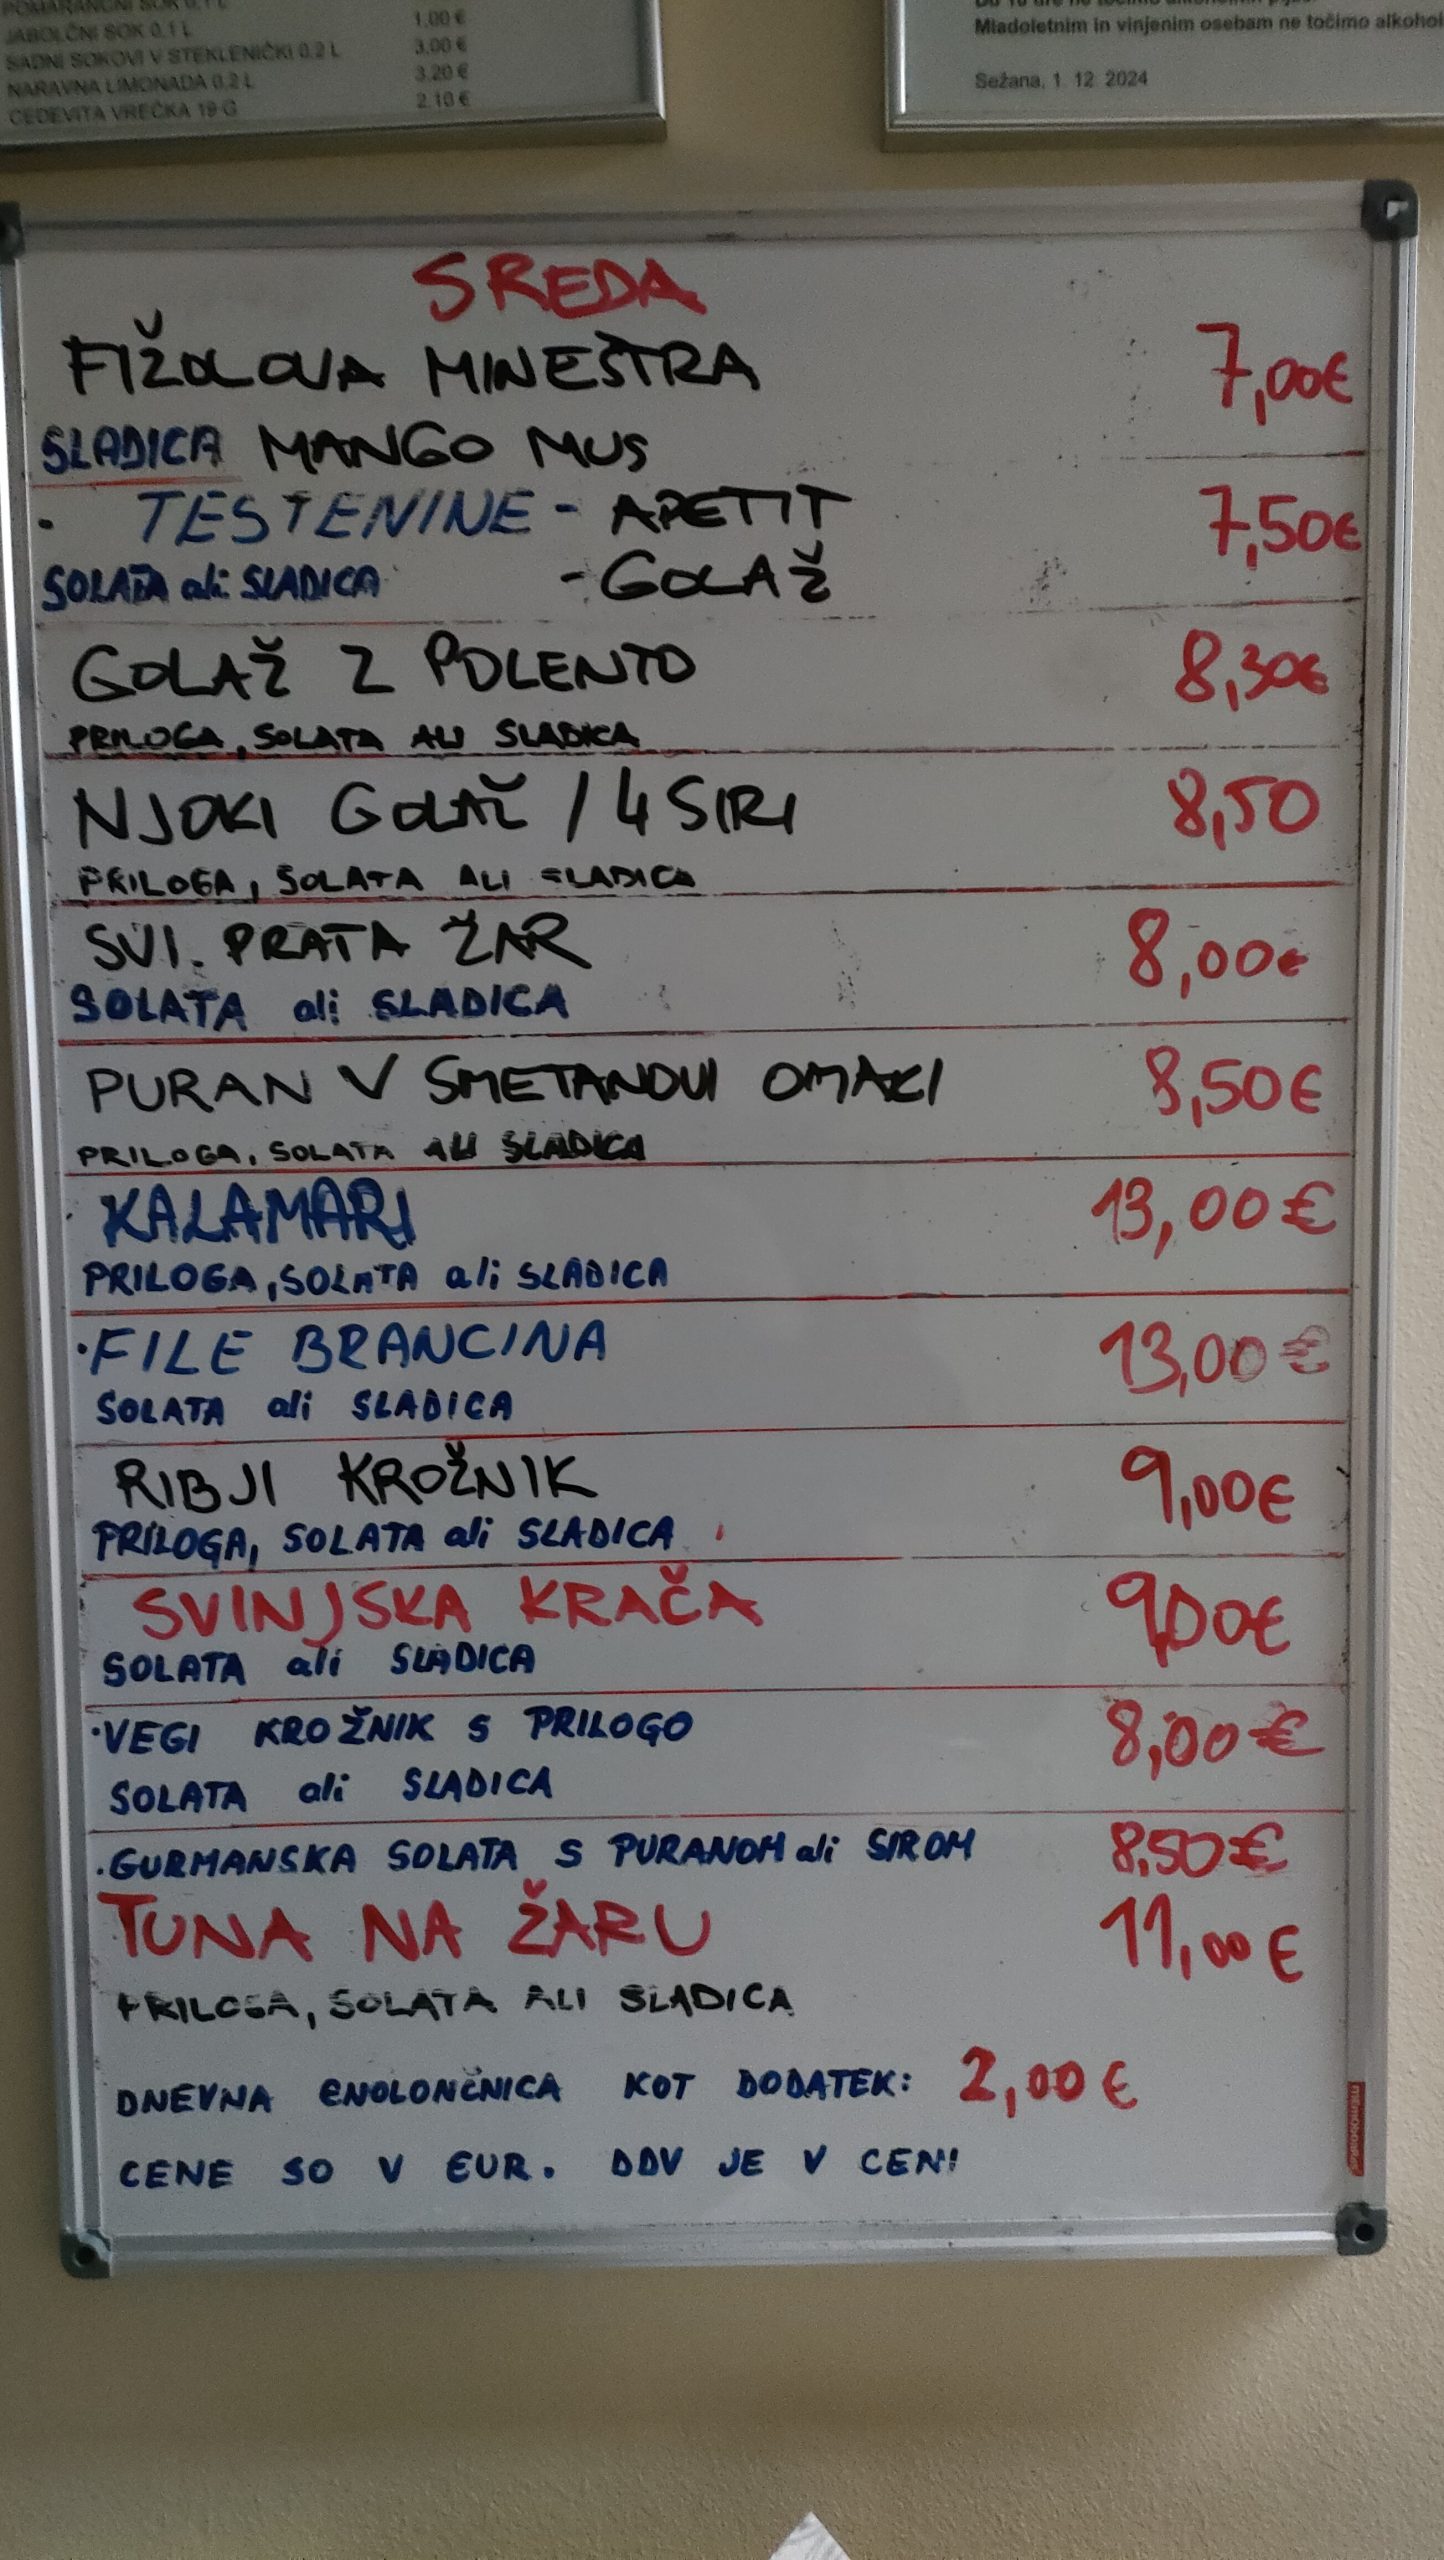 JABOLČNI SOK 0.1 L 1.00 €
SADNI SOKOVI V STEKLENIČKI 0.2 L 3.00 €
NARAVNA LIMONADA 0.2 L 3.20 €
CEDEVITA VREČKA 19 G 2.10 €
Mladoletnim in vinjenim osebam ne točimo alkohol
Sežana, 1. 12. 2024
SREDA
FIŽOLOVA MINEŠTRA 7,00€
SLADICA MANGO MUS
· TESTENINE - APETIT 7,50€
SOLATA ali SLADICA - GOLAŽ
GOLAŽ Z POLENTO 8,30€
PRILOGA, SOLATA ALI SLADICA
NJOKI GOLAŽ / 4 SIRI 8,50
PRILOGA, SOLATA ALI SLADICA
SVI. PRATA ŽAR 8,00€
SOLATA ali SLADICA
PURAN V SMETANOVI OMAKI 8,50€
PRILOGA, SOLATA ALI SLADICA
· KALAMARI 13,00€
PRILOGA, SOLATA ali SLADICA
· FILE BRANCINA 13,00€
SOLATA ali SLADICA
RIBJI KROŽNIK 9,00€
PRILOGA, SOLATA ali SLADICA
SVINJSKA KRAČA 9,00€
SOLATA ali SLADICA
· VEGI KROŽNIK S PRILOGO 8,00€
SOLATA ali SLADICA
· GURMANSKA SOLATA S PURANOM ali SIROM 8,50€
TUNA NA ŽARU 11,00€
PRILOGA, SOLATA ALI SLADICA
DNEVNA ENOLONČNICA KOT DODATEK: 2,00€
CENE SO V EUR. DDV JE V CENI